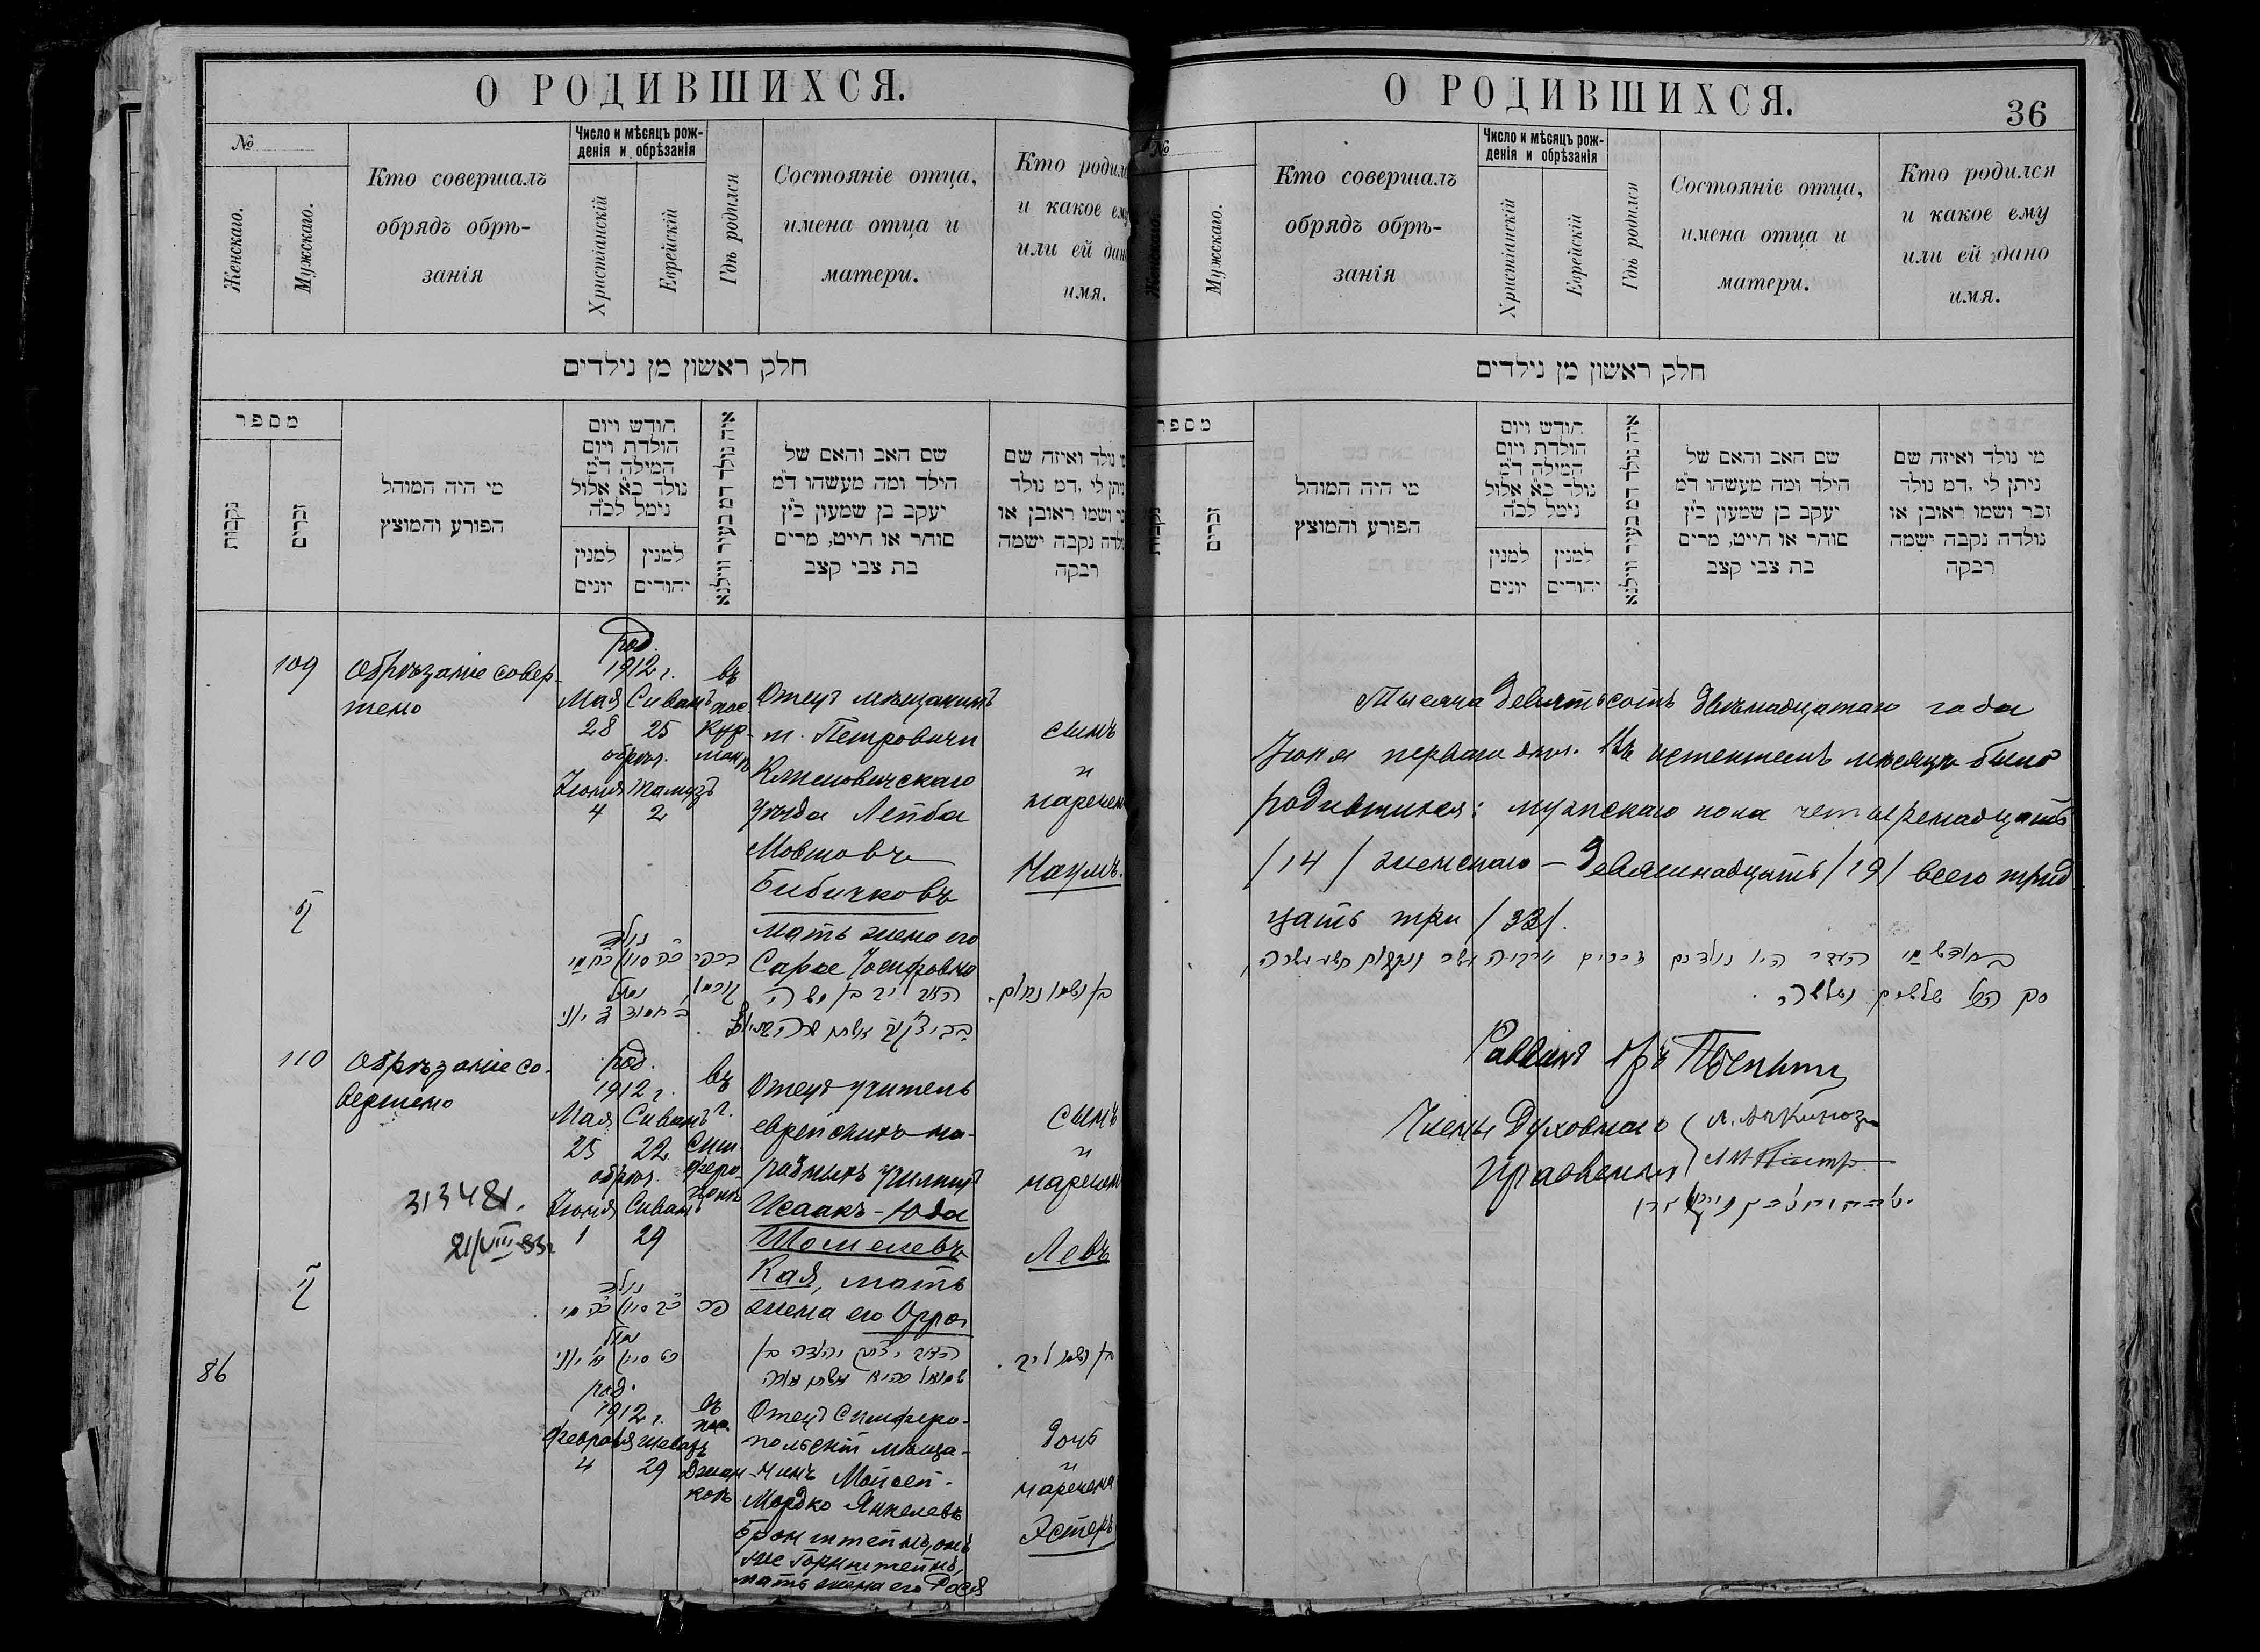 О РОДИВШИХСЯ.
№
Женскаго.
Мужскаго.
Кто совершалъ
обрядъ обрѣ-
занія
Число и мѣсяцъ рож-
денія и обрѣзанія
Христіанскій
Еврейскій
Гдѣ родился
Состояніе отца,
имена отца и
матери.
Кто родил
и какое ему
или ей дан
имя.
חלק ראשון מן נילדים
מספר
נקבות
זכרים
מי היה המוהל
הפורע והמוצץ
חודש ויום
הולדת ויום
המילה ד״מ
נולד כ״א אלול
נימל לכ״ה
למנין
יונים
למנין
יהודים
איה נולד דמ בעיר ווילנא
שם האב והאם של
הילד ומה מעשהו ד״מ
יעקב בן שמעון כ״ץ
סוחר או חייט, מרים
בת צבי קצב
נולד ואיזה שם
ניתן לי ,דמ נולד
ושמו ראובן או
נקבה ישמה
רבקה
109
Обрѣзаніе совер-
шено
род.
1912 г.
Мая Сиванъ
28 25
обрѣз.
Іюня Тамузъ
4 2
въ
пос.
Кур-
манъ
Отецъ мѣщанинъ
м. Петровичи
Климовичскаго
уѣзда Лейба
Мовшовъ
Бибичковъ
мать жена его
Сара Іосифовна
сынъ
и
наречен
Наумъ.
נולד
110
Обрѣзаніе со-
вершено
род.
1912 г.
Мая Сиванъ
25 22
обрѣз.
Іюня Сиванъ
1 29
въ
г.
Сим-
феро-
полѣ
Отецъ учитель
еврейскихъ на-
родныхъ училищъ
Исаакъ-Юда
Шомелевъ
Кая, мать
жена его Орра
сынъ
и
наречен
Левъ
31348
21/VIII-33г
נולד
86
род.
1912 г.
Февраля Шеватъ
4 29
въ
пос.
Джан-
коѣ
Отецъ Симферо-
польскій мѣща-
нинъ Мойсей-
Мордко Янкелевъ
Бронштейнъ, онъ
же Горнштейнъ,
мать жена его Рося
дочь
и
наречена
Эстеръ
О РОДИВШИХСЯ.
36
№
Мужскаго.
Кто совершалъ
обрядъ обрѣ-
занія
Число и мѣсяцъ рож-
денія и обрѣзанія
Христіанскій
Еврейскій
Гдѣ родился
Состояніе отца,
имена отца и
матери.
Кто родился
и какое ему
или ей дано
имя.
חלק ראשון מן נילדים
מספר
זכרים
מי היה המוהל
הפורע והמוצץ
חודש ויום
הולדת ויום
המילה ד״מ
נולד כ״א אלול
נימל לכ״ה
למנין
יונים
למנין
יהודים
איה נולד דמ בעיר ווילנא
שם האב והאם של
הילד ומה מעשהו ד״מ
יעקב בן שמעון כ״ץ
סוחר או חייט, מרים
בת צבי קצב
מי נולד ואיזה שם
ניתן לי ,דמ נולד
זכר ושמו ראובן או
נולדה נקבה ישמה
רבקה
Тысяча девятьсотъ двѣнадцатаго года
Іюня перваго дня. Въ истекшемъ мѣсяцѣ было
родившихся: мужскаго пола четырнадцать
/14/ женскаго - девятнадцать /19/ всего трид
цать три /33/.
סך הכל שלשים ושלשה.
Раввинъ
Члены Духовнаго
Правленія